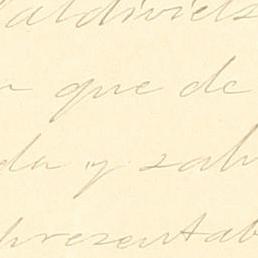 Valdiviels
que de
da y salu
presentab